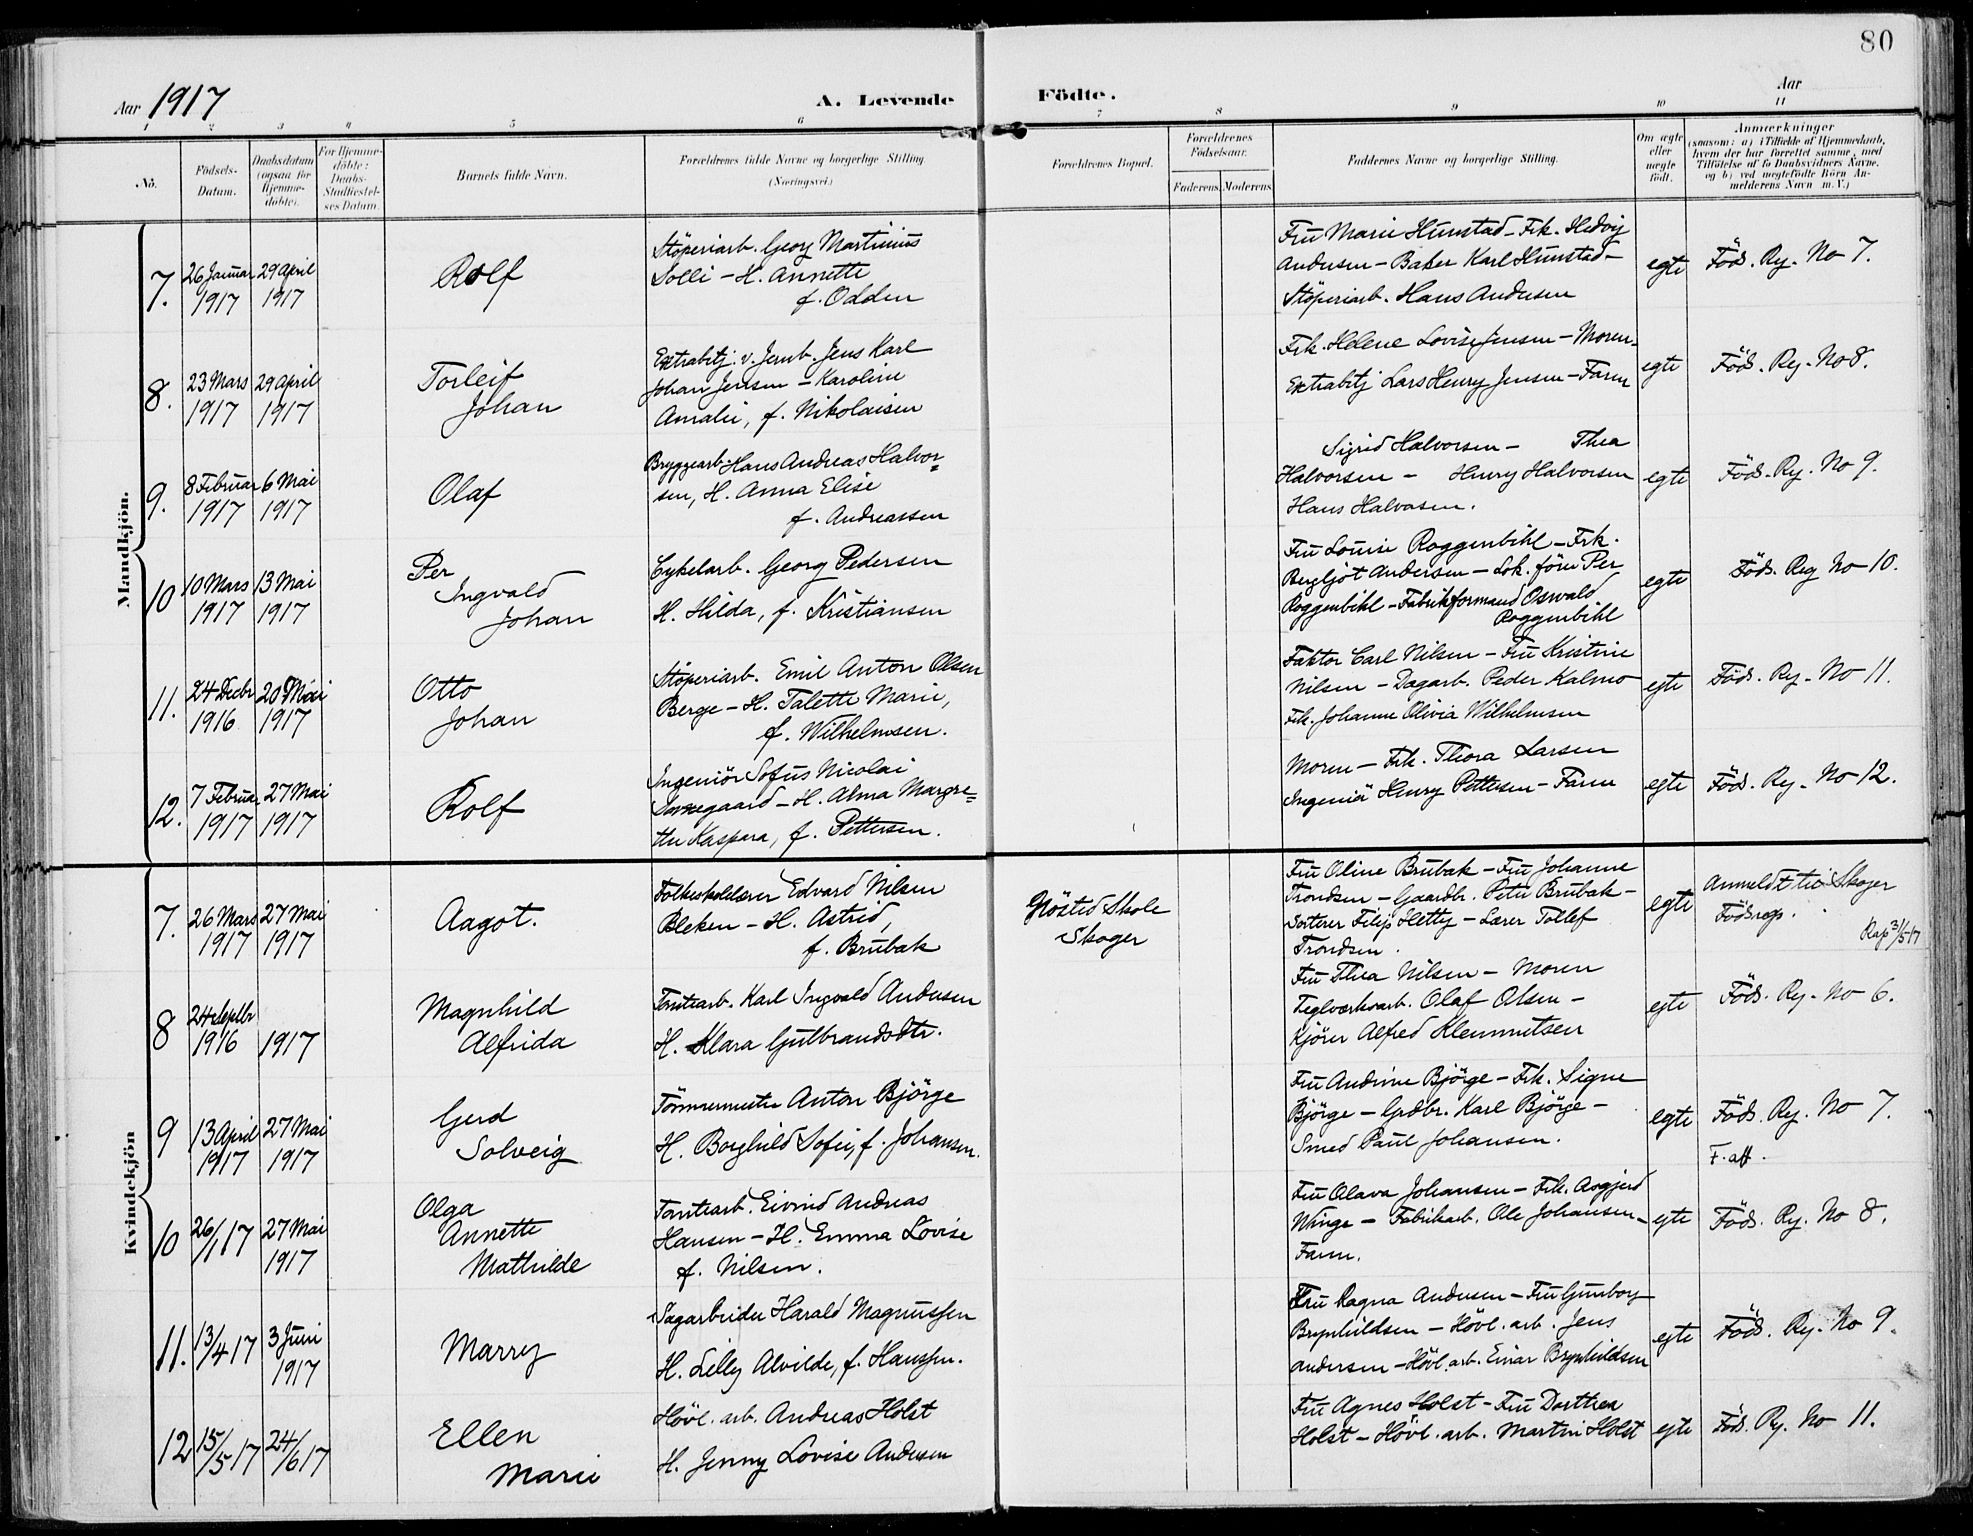 80
Aar 1917
A. Levende Födte.
Aar
1 2 3 4 5 6 7 8 9 10 11
No.
Födsels-
Datum.
Daabsdatum
(ogsaa for
Hjemme-
döbte).
For Hjemme-
döbte:
Daabs-
Stadfæstel-
ses Datum.
Barnets fulde Navn.
Forældrenes fulde Navne og borgerlige Stilling.
(Næringsvei.)
Forældrenes Bopæl.
Forældrenes
Födselsaar.
Faderens. Moderens.
Faddernes Navne og borgerlige Stilling.
Om ægte
eller
uægte
födt.
Anmærkninger
(saasom: a) i Tilfælde af Hjemmedaab,
hvem der har forrettet samme, med
Tilföielse af to Daabsvidners Navne,
og b) ved uægtefödte Börn An-
melderens Navn m. V.)
Mandkjön.
7.
26 Januar
1917
29 April
1917
Rolf
Stöperiarb. Georg Martinius
Solli - H. Annette
f. Odden
Fru Marie Hunstad - Frk. Hedvig
Andersen - Baker Karl Hunstad -
Stöperiarb. Hans Andersen
egte
Föds. Reg. No 7.
8.
23 Mars
1917
29 April
1917
Torleif
Johan
Extrabetj. v. Jernb. Jens Karl
Johan Jensen - Karoline
Amalie, f. Nikolaisen
Frk. Helene Lovise Jensen - Moren -
Extrabetj Lars Henry Jensen - Faren
egte
Föds. Reg. No 8.
9.
8 Februar
1917
6 Mai
1917
Olaf
Bryggearb. Hans Andreas Halvor=
sen, H. Anna Elise
f. Andreassen
Sigrid Halvorsen - Thea
Halvorsen - Henry Halvorsen
Hans Halvorsen.
egte
Föds. Reg. No 9.
10
10 Mars
1917
13 Mai
1917
Per
Ingvald
Johan
Cykelarb. Georg Pedersen
H. Hilda, f. Kristiansen
Fru Louise Roggenbihl - Frk.
Bergljot Andersen - Lok. förer Per
Roggenbihl - Fabrikformand Oswald
Roggenbihl
egte
Föds. Reg No 10.
11.
24 Decbr
1916
20 Mai
1917
Otto
Johan
Stöperiarb. Emil Anton Olsen
Berge - H. Talette Marie,
f. Wilhelmsen.
Faktor Carl Nilsen - Fru Kristine
Nilsen - Dagarb. Peder Kalmo
Frk. Johanne Olivia Wilhelmsen
egte
Föds. Reg. No 11.
12.
7 Februar
1917
27 Mai
1917
Rolf
Ingeniör Sofus Nicolai
- H. Alma Margre=
the Kaspara, f. Pettersen.
Moren - Frk. Thora Larsen
Ingeniör Henry Pettersen - Faren
egte
Föds. Reg. No 12.
Kvindekjön
7.
26 Mars
1917
27 Mai
1917
Aagot.
Folkeskolelærer Edvard Nilsen
Bleken - H. Astrid,
f. Brubak
Skole
Skoger
Fru Oline Brubak - Fru Johanne
Trondsen - Gaardbr. Peter Brubak -
Sorterer Filip Hetty - Lærer Tollef
Trondsen.
egte
Anmeldt til Skoger
Födsreg.
Rap 31/5 17
8
24 Septbr
1916
1917
Magnhild
Alfrida
Tomtearb. Karl Ingvald Andersen
H. Klara Gulbrandsdtr.
Fru Thea Nilsen - Moren
Teglverksarb. Olaf Olsen -
Kjörer Alfred Klemmetsen
egte
Föds. Reg. No 6.
9
13 April
1917
27 Mai
1917
Gerd
Solveig
Tömmermester Anton Björge
H. Borghild Sofie, f. Johansen.
Fru Andrine Björge - Frk. Signe
Björge - Grdbr. Karl Björge -
Smed Paul Johansen.
egte
Föds. Reg. No 7.
F. att.
10
26/1 17
27 Mai
1917
Olga
Annette
Mathilde
Tomtearb. Eivind Andreas
Hansen - H. Emma Lovise
f. Nilsen.
Fru Olava Johansen - Frk. Asgjerd
Winge - Fabrikarb. Ole Johansen -
Faren.
egte
Föds. Reg. No 8.
11.
13/4 17
3 Juni
1917
Marry
Sagarbeider Harald Magnussen
H. Lelly Alvilde, f. Hanssen.
Fru Ragna Andersen - Fru Gunborg
Brynhildsen - Hövl. arb. Jens
Andersen - Hövl. arb. Einar Brynhildsen
egte
Föds. Reg. No 9.
12
15/5 17
24/6 17
Ellen
Marie
Hövl. arb. Andreas Holst
H. Jenny Lovise Andersen
Fru Agnes Holst - Fru Dorthea
Holst - Hövl. arb. Martin Holst
egte
Föds. Reg. No 11.